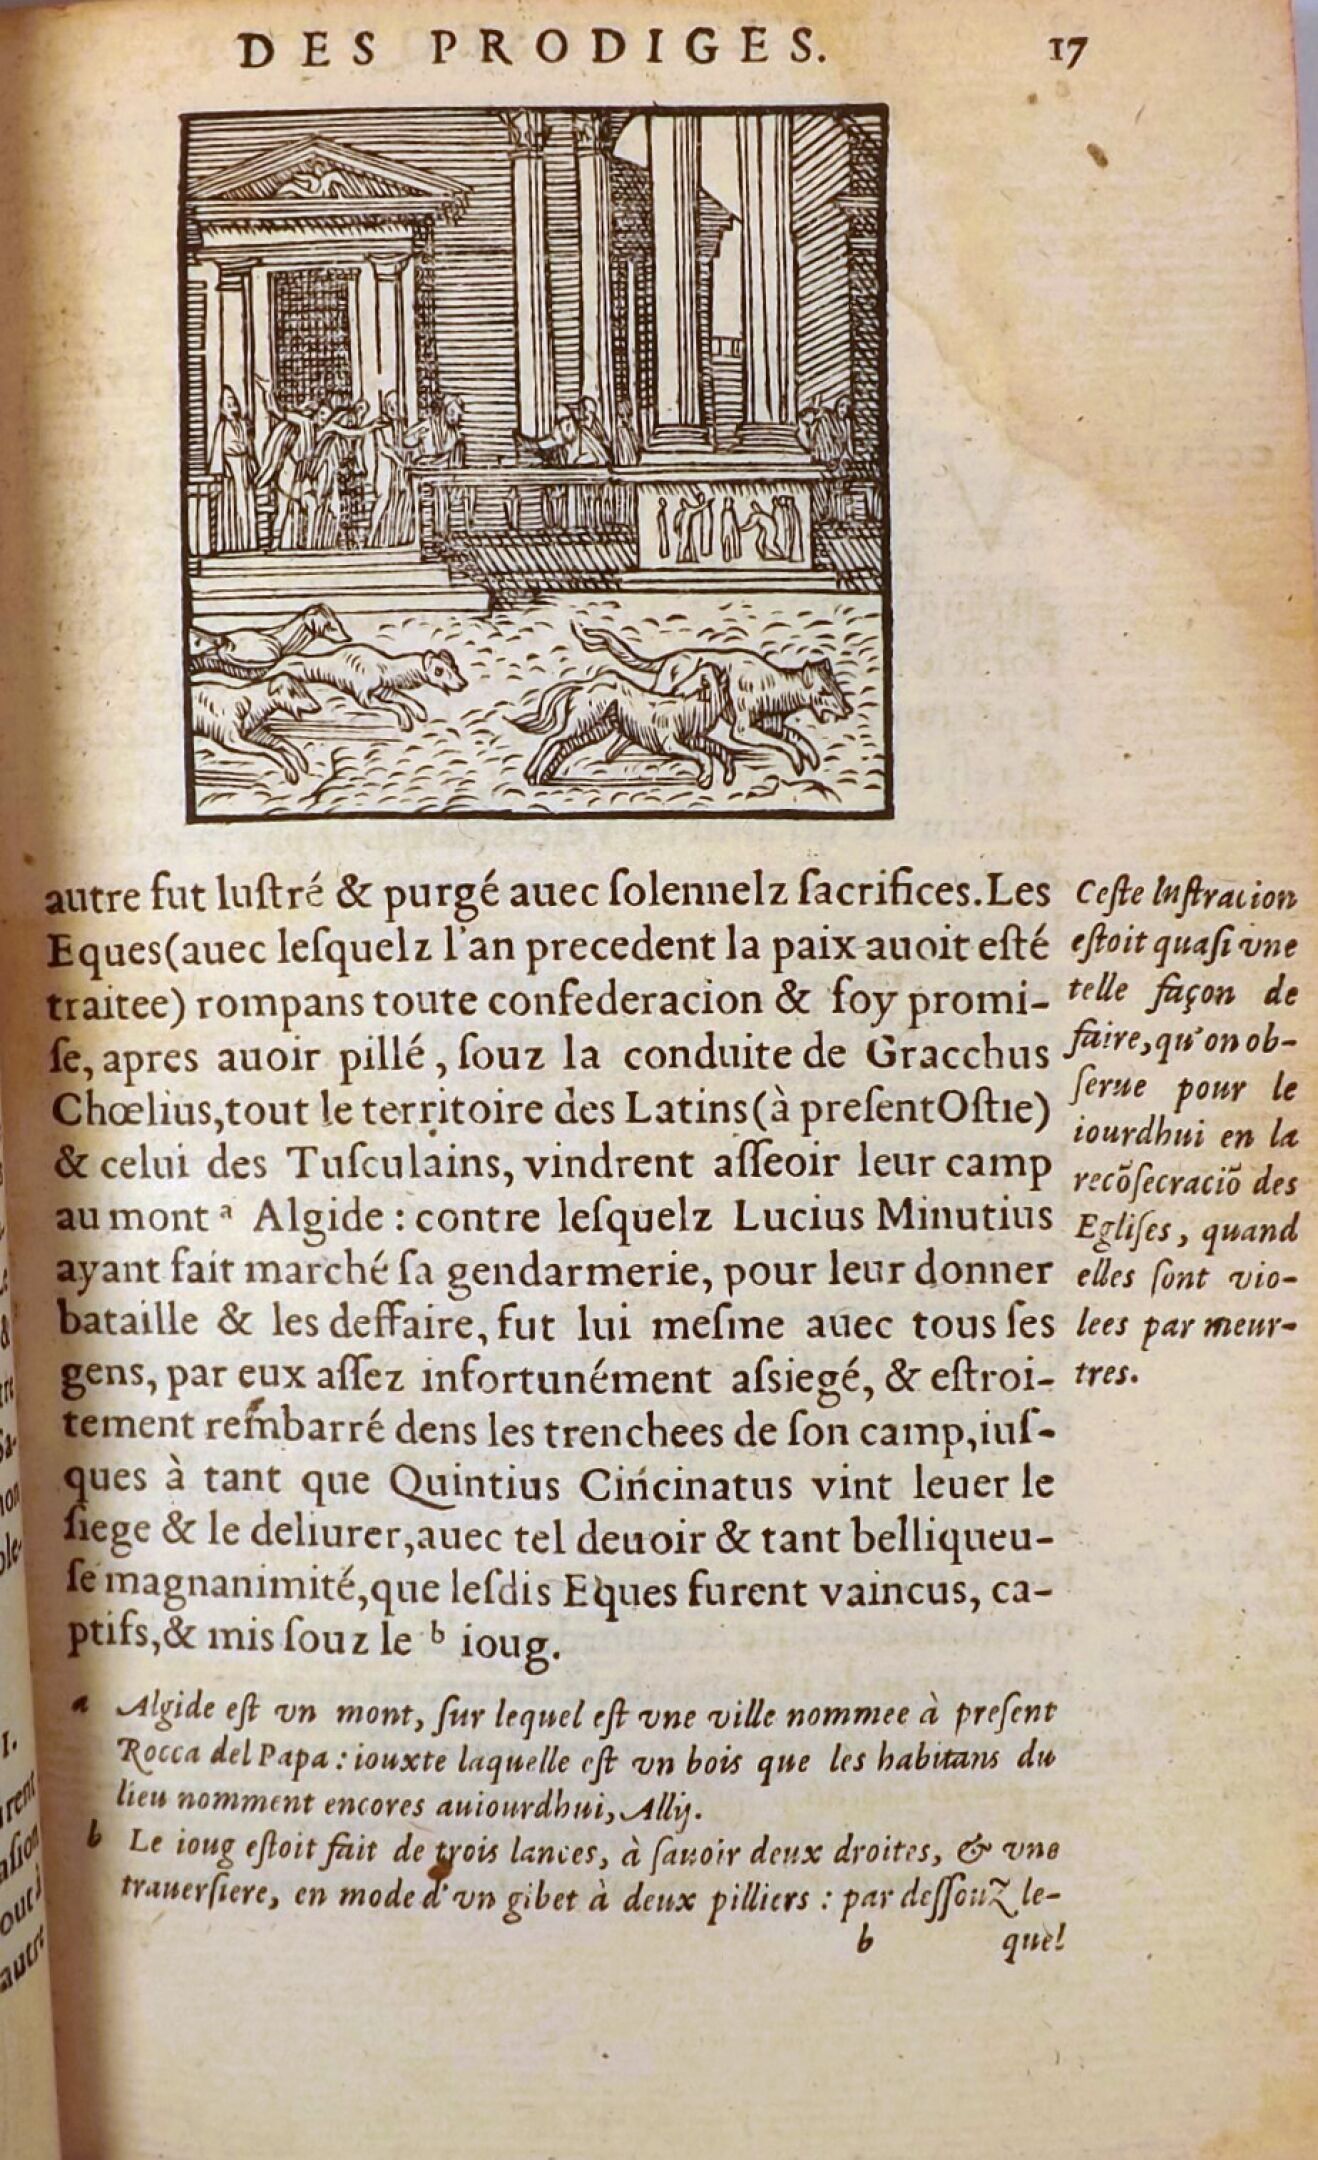 DES PRODIGES.
17
autre fut luſtré & purgé auec ſolennelz ſacrifices. Les
Eques (auec leſquelz l'an precedent la paix auoit eſté
traitee) rompans toute confederacion & foy promi-
ſe, apres auoir pillé, ſouz la conduite de Gracchus
Chœlius, tout le territoire des Latins (à preſent Oſtie)
& celui des Tuſculains, vindrent aſſeoir leur camp
au mont a Algide : contre leſquelz Lucius Minutius
ayant fait marché ſa gendarmerie, pour leur donner
bataille & les deffaire, fut lui meſme auec tous ſes
gens, par eux aſſez infortunément aſsiegé, & eſtroi-
tement rembarré dens les trenchees de ſon camp, iuſ-
ques à tant que Quintius Cincinatus vint leuer le
ſiege & le deliurer, auec tel deuoir & tant belliqueu-
ſe magnanimité, que leſdis Eques furent vaincus, ca-
ptifs, & mis ſouz le b ioug.
Ceſte luſtracion
eſtoit quaſi vne
telle façon de
faire, qu'on ob-
ſerue pour le
iourdhui en la
recõſecraciõ des
Egliſes, quand
elles ſont vio-
lees par meur-
tres.
a Algide eſt vn mont, ſur lequel eſt vne ville nommee à preſent
Rocca del Papa : iouxte laquelle eſt vn bois que les habitans du
lieu nomment encores auiourdhui, Allij.
b Le ioug eſtoit fait de trois lances, à ſauoir deux droites, & vne
trauerſiere, en mode d'vn gibet à deux pilliers : par deſſouz le-
b quel